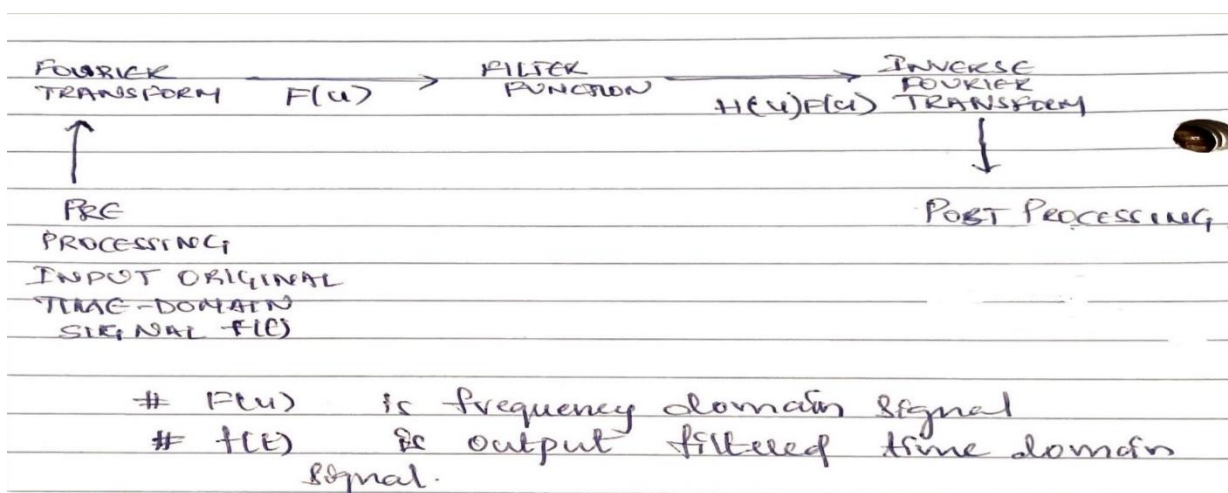 FOURIER TRANSFORM
F(u)
FILTER FUNCTION
H(u)F(u)
INVERSE FOURIER TRANSFORM
PRE
PROCESSING
INPUT ORIGINAL
TIME-DOMAIN
SIGNAL f(t)
POST PROCESSING
# F(u) is frequency domain signal
# f(t) is output filtered time domain
signal.